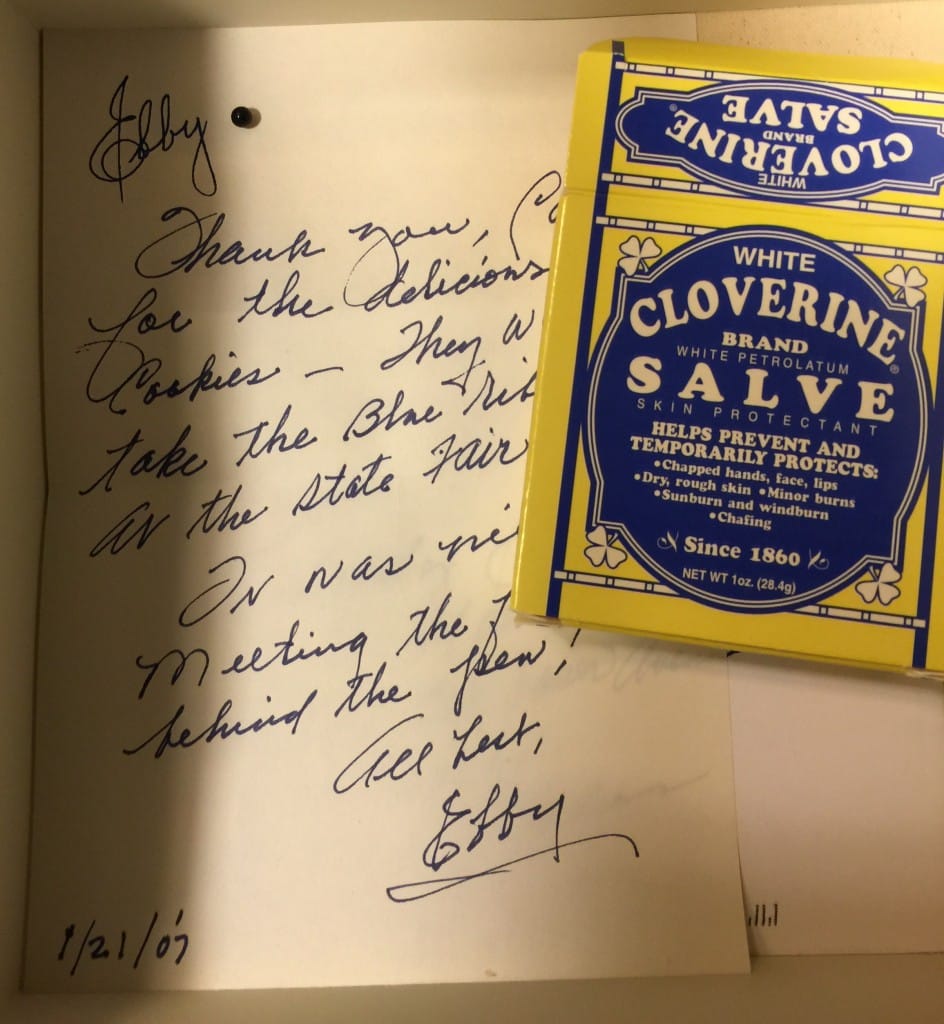 Ebby
Thank you,
for the delicious
Cookies – They
take the Blue
at the State Fair
It was
Meeting the
behind the pen,
All best,
Ebby
1/21/07
WHITE
CLOVERINE®
BRAND
SALVE
WHITE
CLOVERINE®
BRAND
WHITE PETROLATUM
SALVE
SKIN PROTECTANT
HELPS PREVENT AND
TEMPORARILY PROTECTS:
•Chapped hands, face, lips
•Dry, rough skin •Minor burns
•Sunburn and windburn
•Chafing
Since 1860
NET WT 1oz. (28.4g)